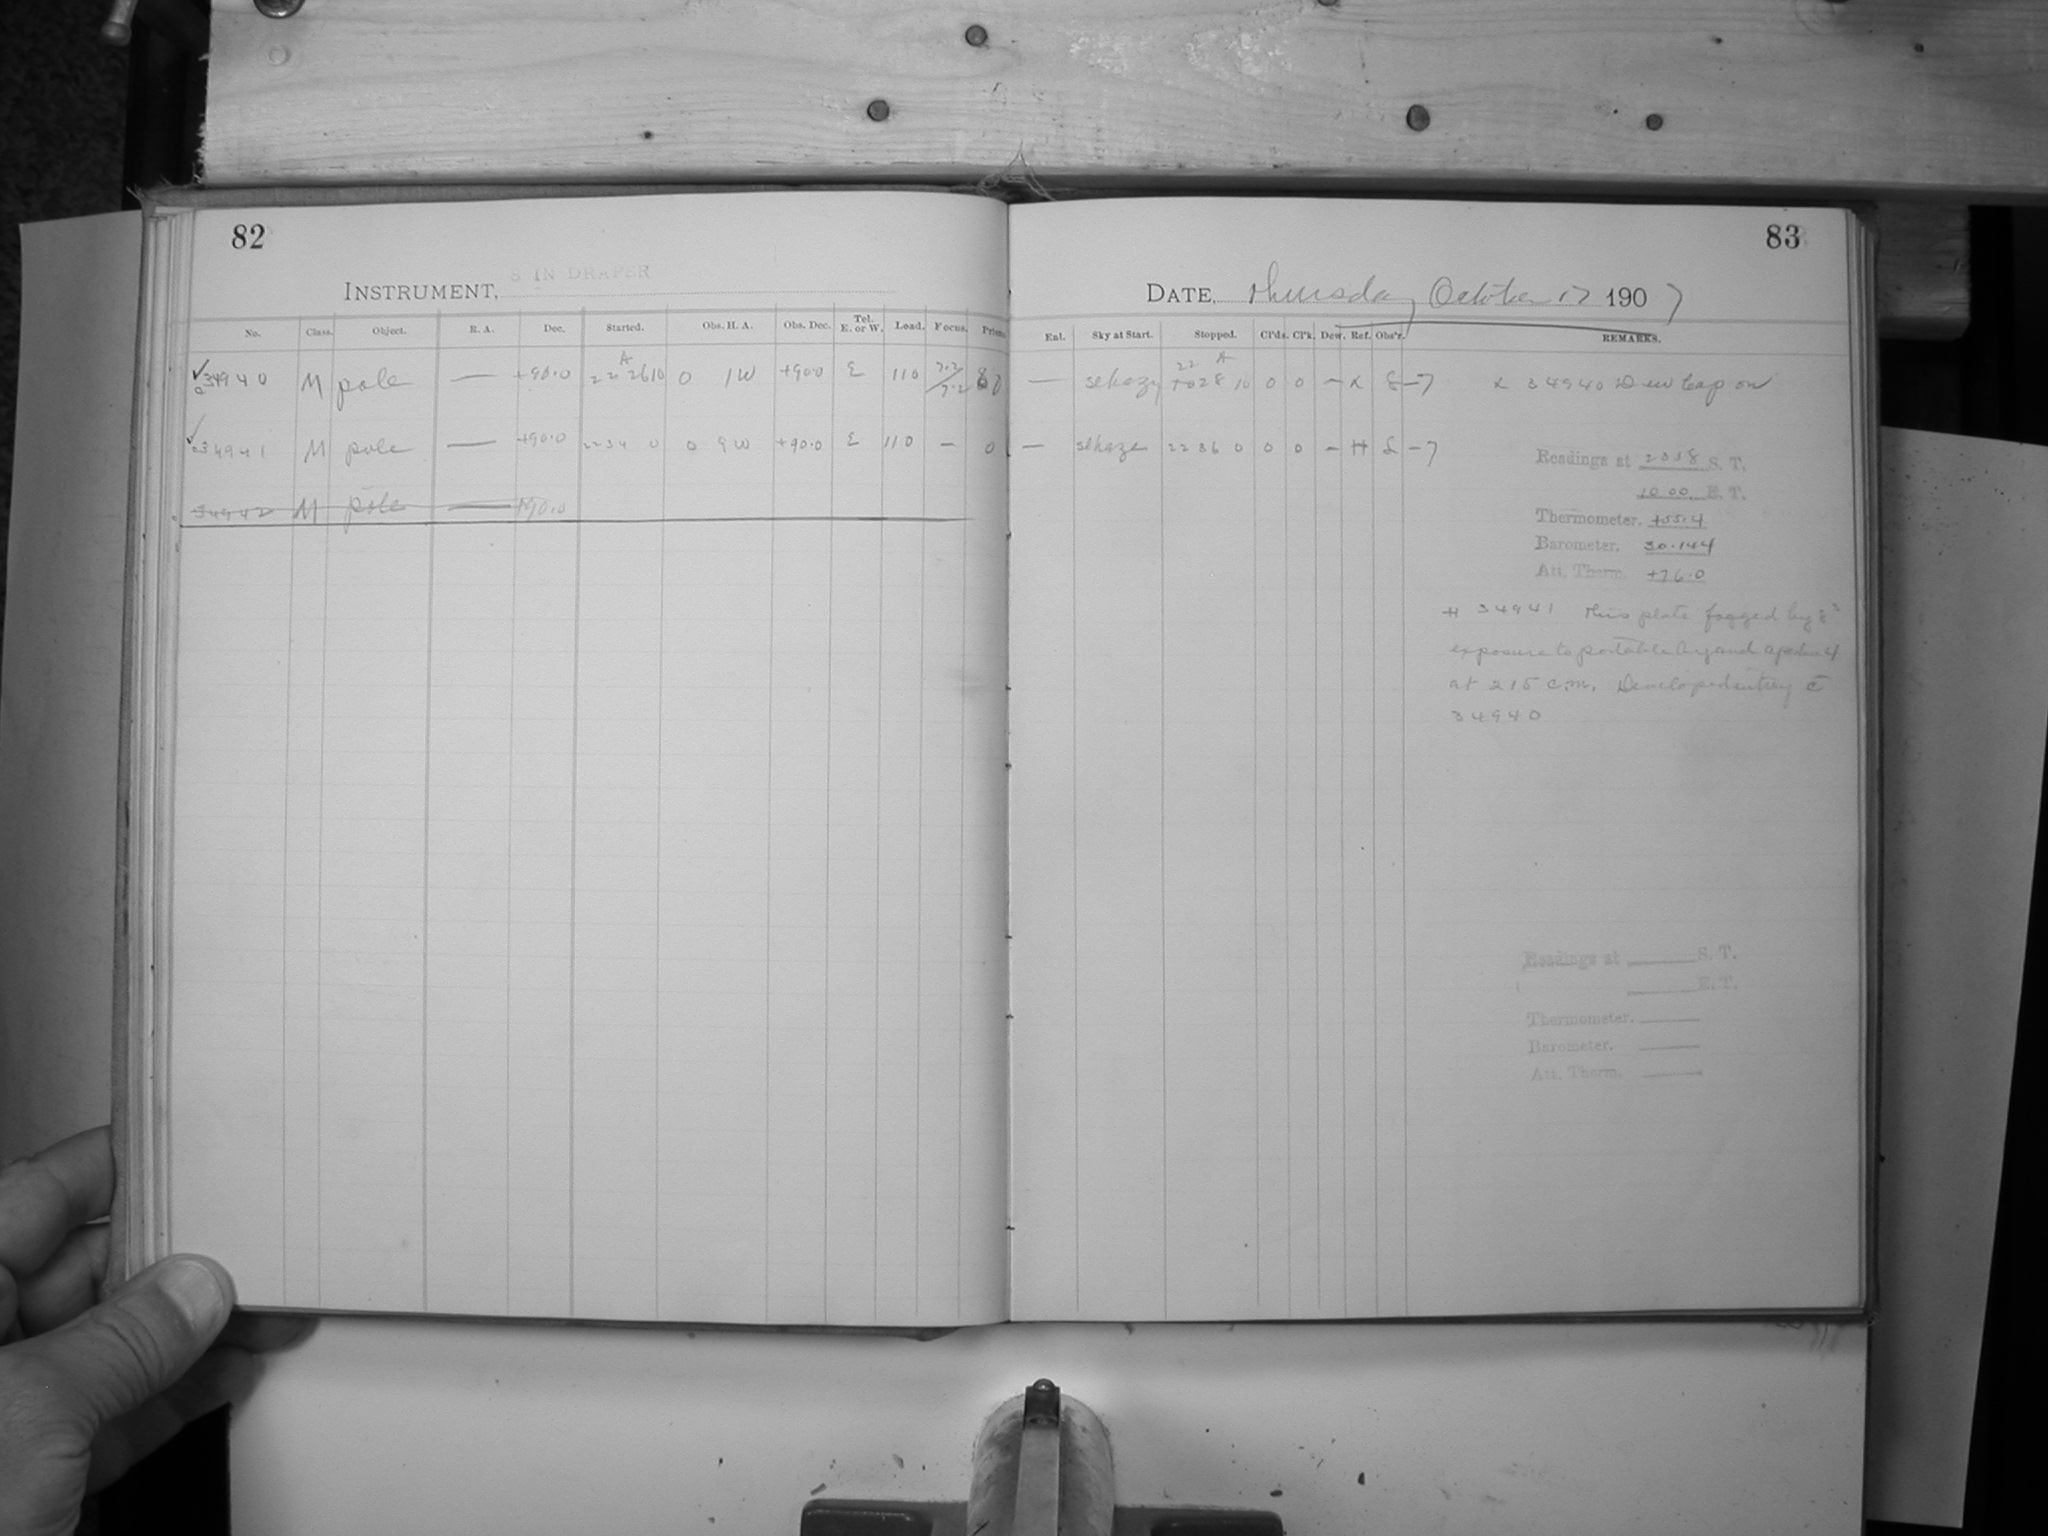 82
83
8 IN DRAPER
INSTRUMENT,
DATE, Thursday October 17 1907
No. Class. Object. R. A. Dec. Started. Obs. H. A. Obs. Dec. Tel. E. or W. Load. Focus. Prism.
Ent. Sky at Start. Stopped. Cl'ds. Cl'k. Dew. Ref. Obs'r. REMARKS.
34940 M pole — +90.0 22 26 10 0 1W +90.0 E 110 7.2/7.2 0 — slhazy 22 28 10 0 0 – x S–7 x 34940 Dew Cap on
34941 M pole — +90.0 22 34 0 0 9W +90.0 E 110 – 0 — slhaze 22 36 0 0 0 – H S –7
34942 M pole — +90.0
Readings at 2338 S. T.
10 00 E. T.
Thermometer. +55.4
Barometer. 30.144
Att. Therm. +76.0
H 34941 This plate fogged by 8s
exposure to portable Argand aperture 4
at 215 c.m. Developed
34940
Readings at S. T.
E. T.
Thermometer.
Barometer.
Att. Therm.